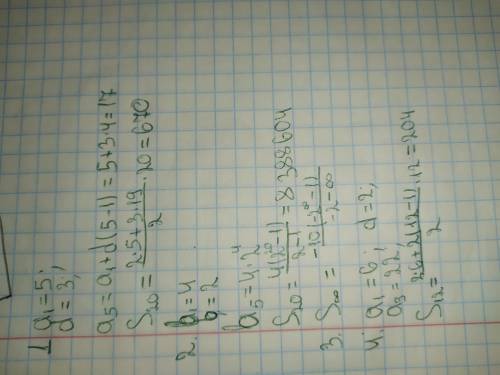 1 a₁=5;
d=3;
a₅=a₁+d(5-1)=5+3·4=17
S₂₀=(2·5+3·19)/2·20=670
2. b₁=4
b₁=2
b₅=4·2⁴
S₂₀=4(2²⁰-1)/(2-1)=8388604
3. S∞=
4. a₁=6; d=2;
a₉=22;
S₁₂=(2·6+2(12-1))/2·12=204